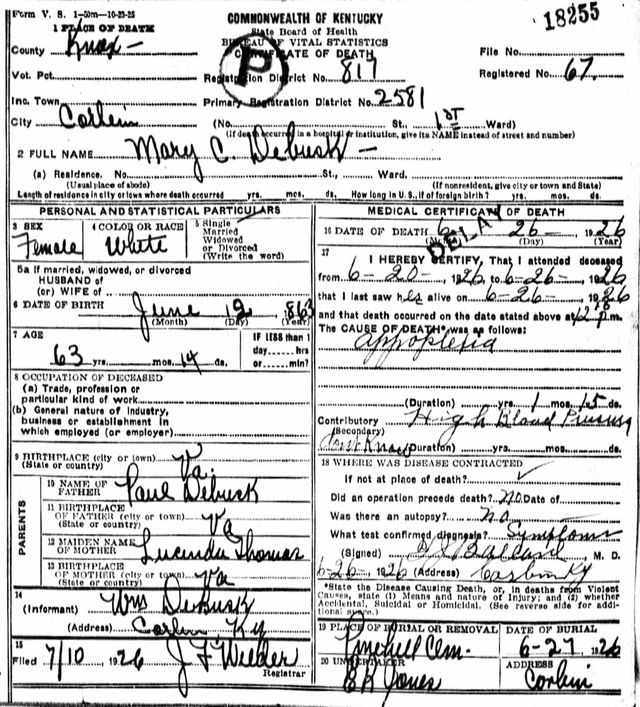 Form V. S. 1-50m-10-23-25
COMMONWEALTH OF KENTUCKY
18255
1 PLACE OF DEATH
State Board of Health
BUREAU OF VITAL STATISTICS
CERTIFICATE OF DEATH
P
County Knox
File No.
Vot. Pct.
Registration District No. 817
Registered No. 67.
Inc. Town
Primary Registration District No. 2581
City Corbin (No. St., 1st Ward)
(If death occurred in a hospital or institution, give its NAME instead of street and number)
2 FULL NAME Mary C. Debusk
(a) Residence. No. St., Ward.
(Usual place of abode) (If nonresident, give city or town and State)
Length of residence in city or town where death occurred yrs. mos. ds. How long in U. S., if of foreign birth? yrs. mos. ds.
PERSONAL AND STATISTICAL PARTICULARS
3 SEX 4 COLOR OR RACE 5 Single
Married
Widowed
or Divorced
(Write the word)
Female White
5a If married, widowed, or divorced
HUSBAND of
(or) WIFE of
6 DATE OF BIRTH June 12, 1863
(Month) (Day) (Year)
7 AGE IF LESS than 1
63 yrs. mos. 14 ds. day hrs
or min?
8 OCCUPATION OF DECEASED
(a) Trade, profession or
particular kind of work
(b) General nature of industry,
business or establishment in
which employed (or employer)
9 BIRTHPLACE (city or town) Va.
(State or country)
PARENTS
10 NAME OF
FATHER Paul Debusk
11 BIRTHPLACE
OF FATHER (city or town) Va
(State or country)
12 MAIDEN NAME
OF MOTHER Lucinda Thomas
13 BIRTHPLACE
OF MOTHER (city or town) Va
(State or country)
14
(Informant) Wm Debusk
(Address) Corbin, Ky
15
Filed 7/10 1926 J F Wilder
Registrar
MEDICAL CERTIFICATE OF DEATH
DELAY
16 DATE OF DEATH 6- 26- 1926
(Day) (Year)
17
I HEREBY CERTIFY, That I attended deceased
from 6-20- 1926, to 6-26- 1926
that I last saw her alive on 6-26- 1926
and that death occurred on the date stated above at 12 P m.
The CAUSE OF DEATH* was as follows:
Appoplexia
(Duration) yrs. 1 mos. 15 ds.
Contributory High Blood Pressure
(Secondary)
dont Know (Duration) yrs. mos. ds.
18 WHERE WAS DISEASE CONTRACTED
If not at place of death?
Did an operation precede death? No. Date of
Was there an autopsy? no
What test confirmed diagnosis? Symptoms
(Signed) Ballard, M. D.
6-26-, 1926 (Address) Corbin Ky
*State the Disease Causing Death, or, in deaths from Violent
Causes, state (1) Means and nature of Injury; and (2) whether
Accidental, Suicidal or Homicidal. (See reverse side for addi-
tional space.)
19 PLACE OF BURIAL OR REMOVAL DATE OF BURIAL
Pinehill Cem. 6-27, 1926
20 UNDERTAKER ADDRESS
Jones Corbin